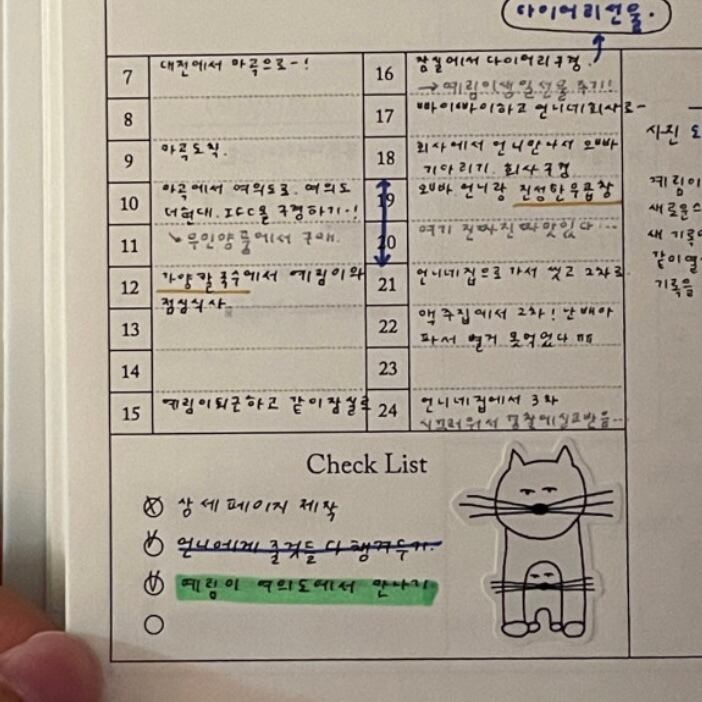 다이어리선물.
7 대전에서 마곡으로-!
8
9 마곡도착.
10 마곡에서 여의도로. 여의도
더현대. IFC몰 구경하기-!
11 무인양품에서 구매.
12 가양칼국수에서 예림이와
점심식사.
13
14
15 예림이퇴근하고 같이잠실로
16 잠실에서 다이어리구경.
→예림이생일선물주기!
17 빠이빠이하고 언니네회사로-
18 회사에서 언니만나서 오빠
기다리기. 회사구경
19 오빠. 언니랑 진성한우곱창
20 여기 진짜진짜맛있다...
21 언니네집으로가서 씻고 2차로
22 맥주집에서 2차! 난 배아
파서 별거 못먹었다 ㅠㅠ
23
24 언니네집에서 3차
시끄러워서 경찰에신고받음...
사진
예림이
새로운
새 기록
같이
기록을
Check List
상세페이지 제작
언니에게 줄것들 다 챙겨두기.
예림이 여의도에서 만나기